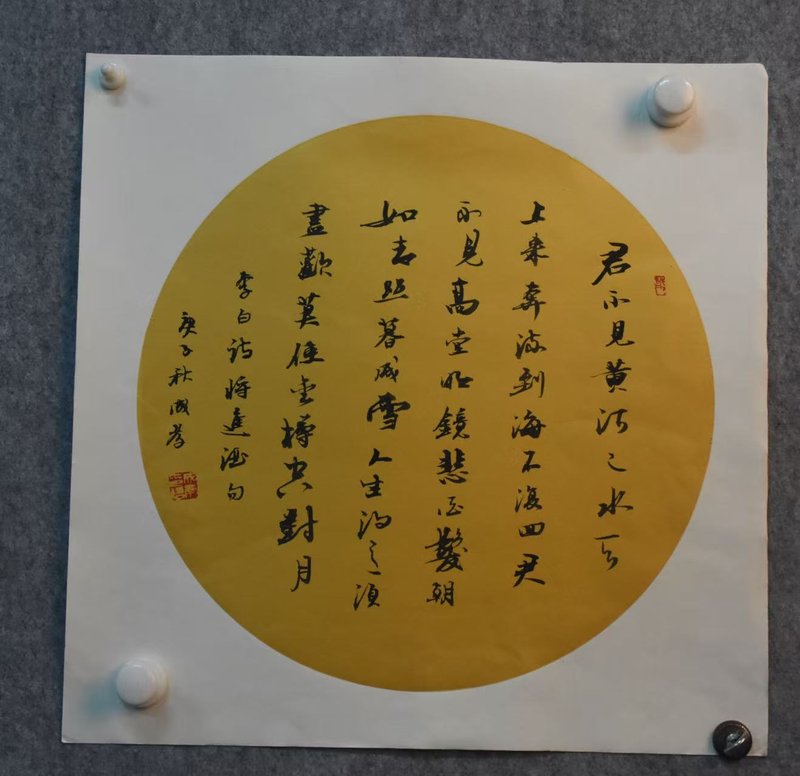 君不見黄河之水天
上來奔流到海不復回君
不見高堂明鏡悲白髮朝
如青丝暮成雪人生得意須
盡歡莫使金樽空對月
李白詩將進酒句
庚子秋